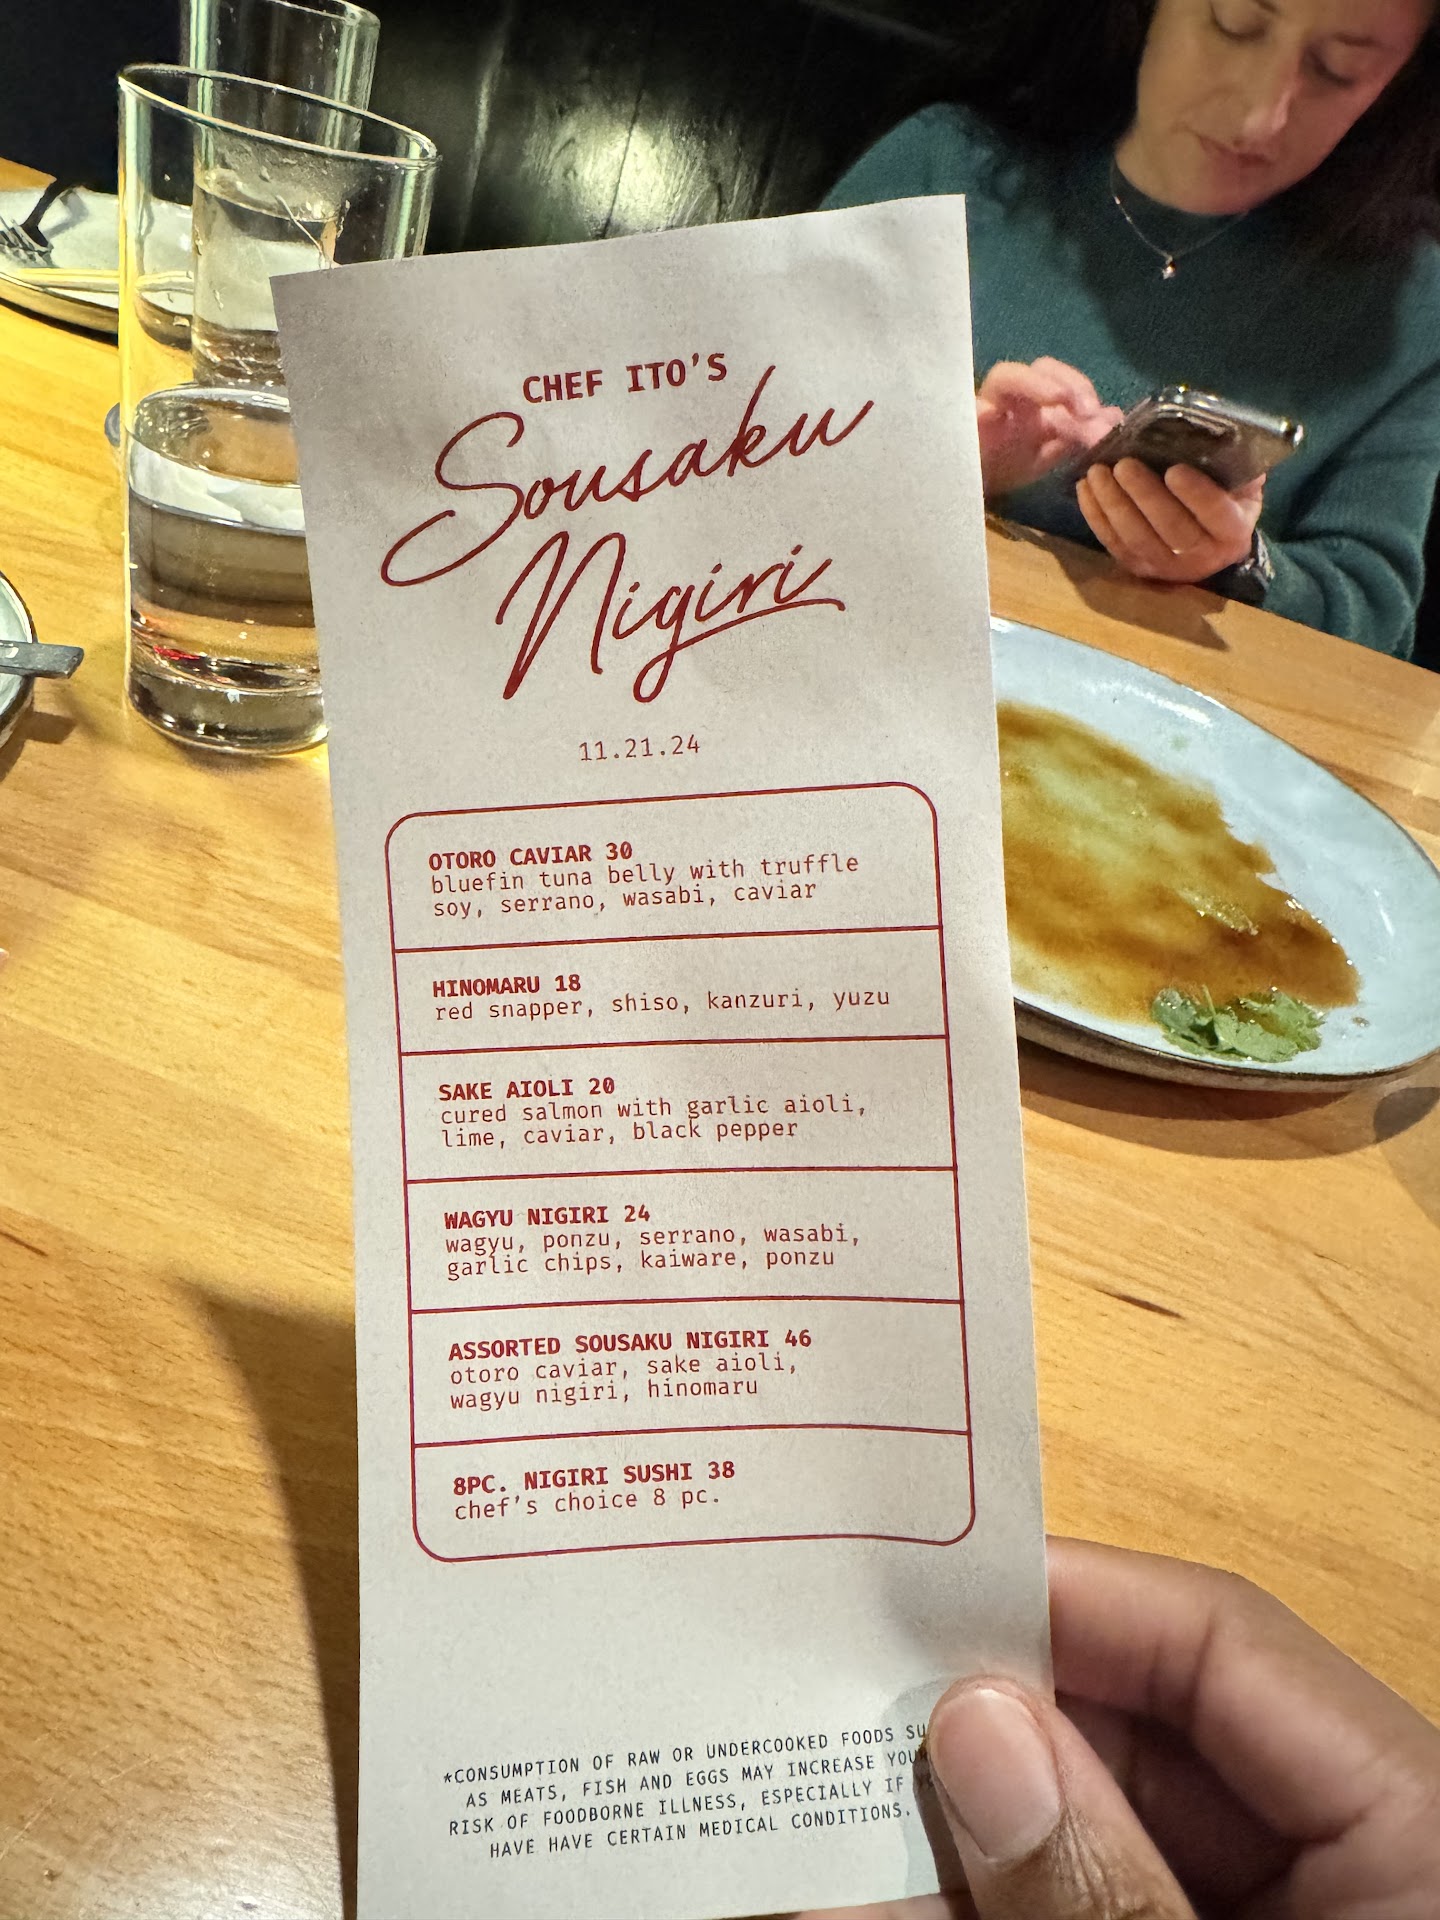 CHEF ITO'S
Sousaku
Nigiri
11.21.24
OTORO CAVIAR 30
bluefin tuna belly with truffle
soy, serrano, wasabi, caviar
HINOMARU 18
red snapper, shiso, kanzuri, yuzu
SAKE AIOLI 20
cured salmon with garlic aioli,
lime, caviar, black pepper
WAGYU NIGIRI 24
wagyu, ponzu, serrano, wasabi,
garlic chips, kaiware, ponzu
ASSORTED SOUSAKU NIGIRI 46
otoro caviar, sake aioli,
wagyu nigiri, hinomaru
8PC. NIGIRI SUSHI 38
chef's choice 8 pc.
*CONSUMPTION OF RAW OR UNDERCOOKED FOODS
AS MEATS, FISH AND EGGS MAY INCREASE
RISK OF FOODBORNE ILLNESS, ESPECIALLY IF
HAVE HAVE CERTAIN MEDICAL CONDITIONS.